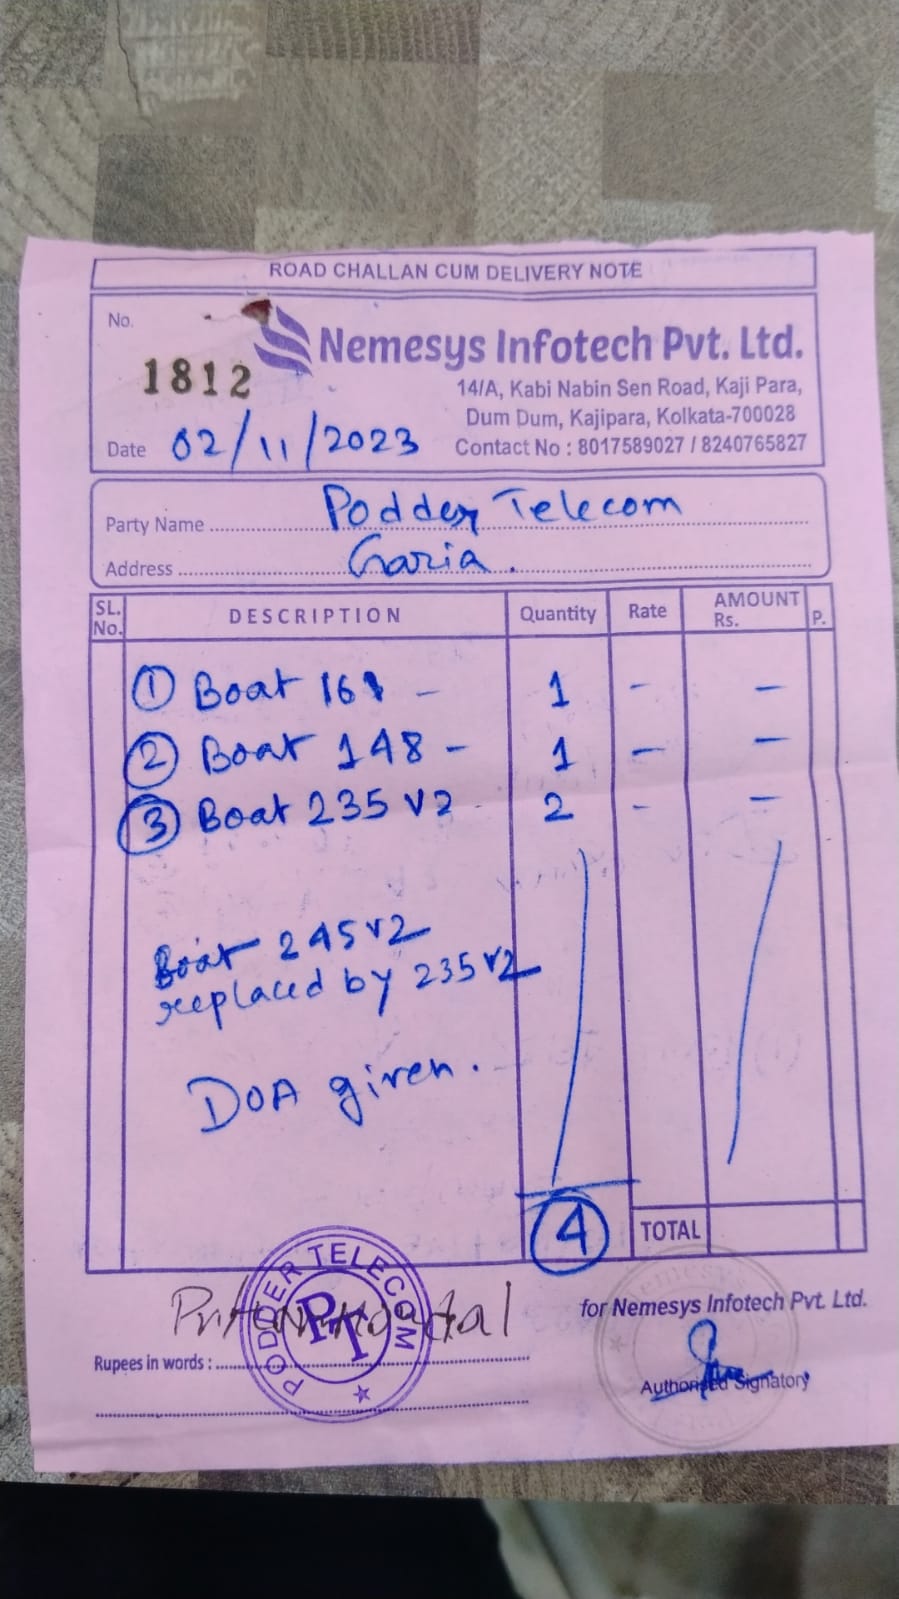 ROAD CHALLAN CUM DELIVERY NOTE
No.
1812
Nemesys Infotech Pvt. Ltd.
14/A, Kabi Nabin Sen Road, Kaji Para,
Dum Dum, Kajipara, Kolkata-700028
Contact No : 8017589027 / 8240765827
Date 02/11/2023
Party Name Podder Telecom
Address Garia.
SL. No. DESCRIPTION Quantity Rate AMOUNT Rs. P.
① Boat 161 - 1 - -
② Boat 148 - 1 - -
③ Boat 235 V2 2 - -
Boat 245 V2
replaced by 235 V2
DOA given.
4 TOTAL
PODDER TELECOM
PT
for Nemesys Infotech Pvt. Ltd.
Rupees in words :
Authorised Signatory